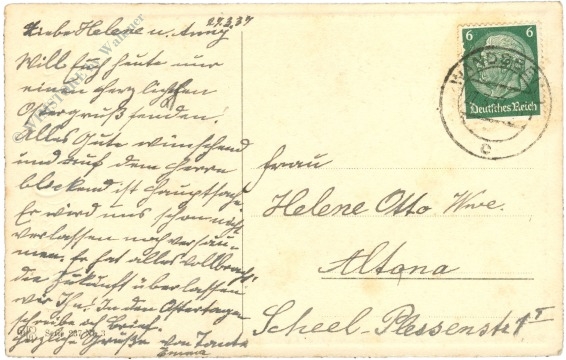 27.3.37
Liebe Helene u. Anny.
Will Euch heute nur
einen herzlichen
Ostergruß senden!
Alles Gute wünschend
und auf den Herrn
blickend ist Hauptsache
Er wird uns schon nicht
verlassen noch versäu-
men. Er hat alles vollbracht
die Zukunft überlassen
wir Ihm! In den Ostertagen
schreibe ich Brief.
Herzliche Grüße von Tante
Emma
6 6
Deutsches Reich
WANDSBEK
c
Frau
Helene Otto Wwe.
Altona
Scheel-Plessenstr 1 I
Serie 237